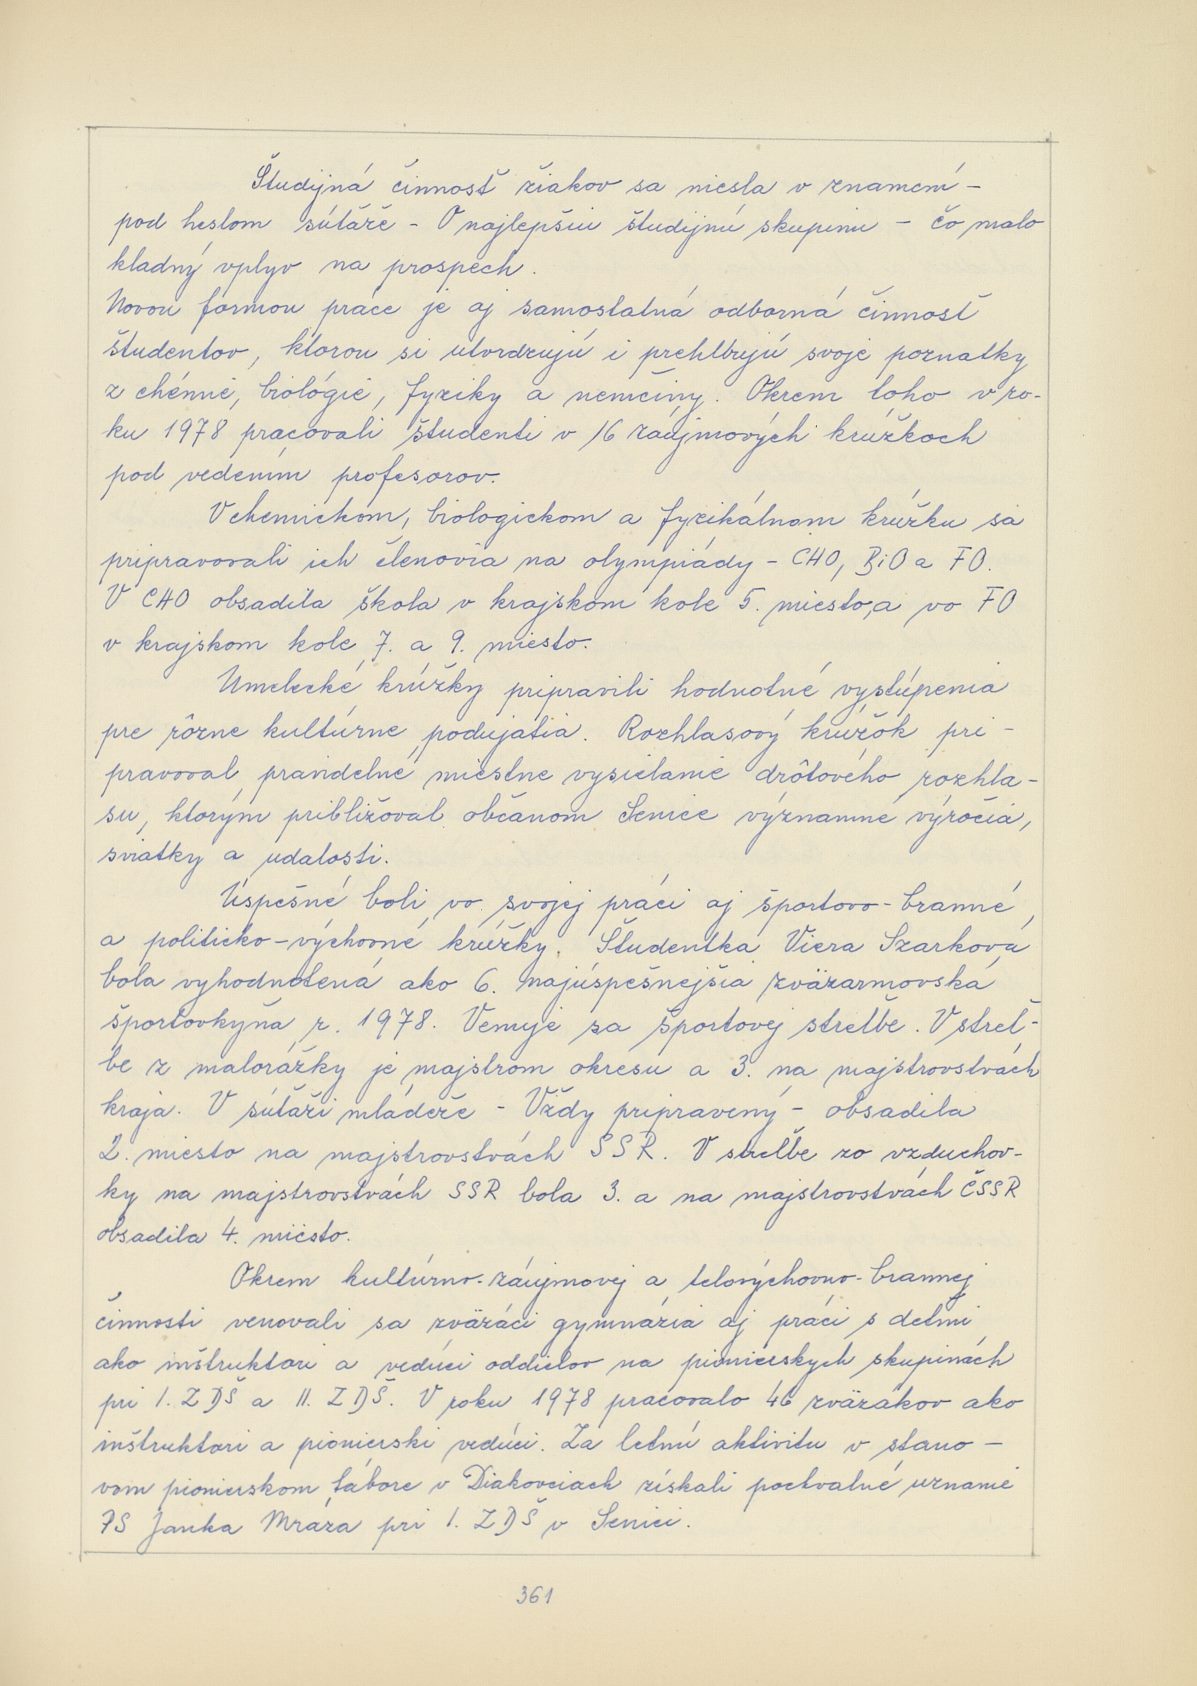 Študijná činnosť žiakov sa niesla v znamení -
pod heslom súťaže - O najlepšiu študijnú skupinu - čo malo
kladný vplyv na prospech.
Novou formou práce je aj samostatná odborná činnosť
študentov, ktorou si utvrdzujú i prehlbujú svoje poznatky
z chémie, biológie, fyziky a nemčiny. Okrem toho v ro-
ku 1978 pracovali študenti v 16 záujmových krúžkoch
pod vedením profesorov.
V chemickom, biologickom a fyzikálnom krúžku sa
pripravovali ich členovia na olympiády - CHO, BiO a FO.
V CHO obsadila škola v krajskom kole 5. miesto, a vo FO
v krajskom kole 7. a 9. miesto.
Umelecké krúžky pripravili hodnotné vystúpenia
pre rôzne kultúrne podujatia. Rozhlasový krúžok pri-
pravoval pravidelné miestne vysielanie drôtového rozhla-
su, ktorým približoval občanom Senice významné výročia,
sviatky a udalosti.
Úspešné boli vo svojej práci aj športovo-branné,
a politicko-výchovné krúžky. Študentka Viera Szarková
bola vyhodnotená ako 6. najúspešnejšia zväzarmovská
športovkyňa r. 1978. Venuje sa športovej streľbe. V streľ-
be z malorážky je majstrom okresu a 3. na majstrovstvách
kraja. V súťaži mládeže - Vždy pripravený - obsadila
2. miesto na majstrovstvách SSR. V streľbe zo vzduchov-
ky na majstrovstvách SSR bola 3. a na majstrovstvách ČSSR
obsadila 4. miesto.
Okrem kultúrno-záujmovej a telovýchovno-brannej
činnosti venovali sa zväzáci gymnázia aj práci s deťmi
ako inštruktori a vedúci oddielov na pionierskych skupinách
pri I. ZDŠ a II. ZDŠ. V roku 1978 pracovalo 46 zväzákov ako
inštruktori a pionierski vedúci. Za letnú aktivitu v stano-
vom pionierskom tábore v Diakovciach získali pochvalné uznanie
PS Janka Mráza pri I. ZDŠ v Senici.
361